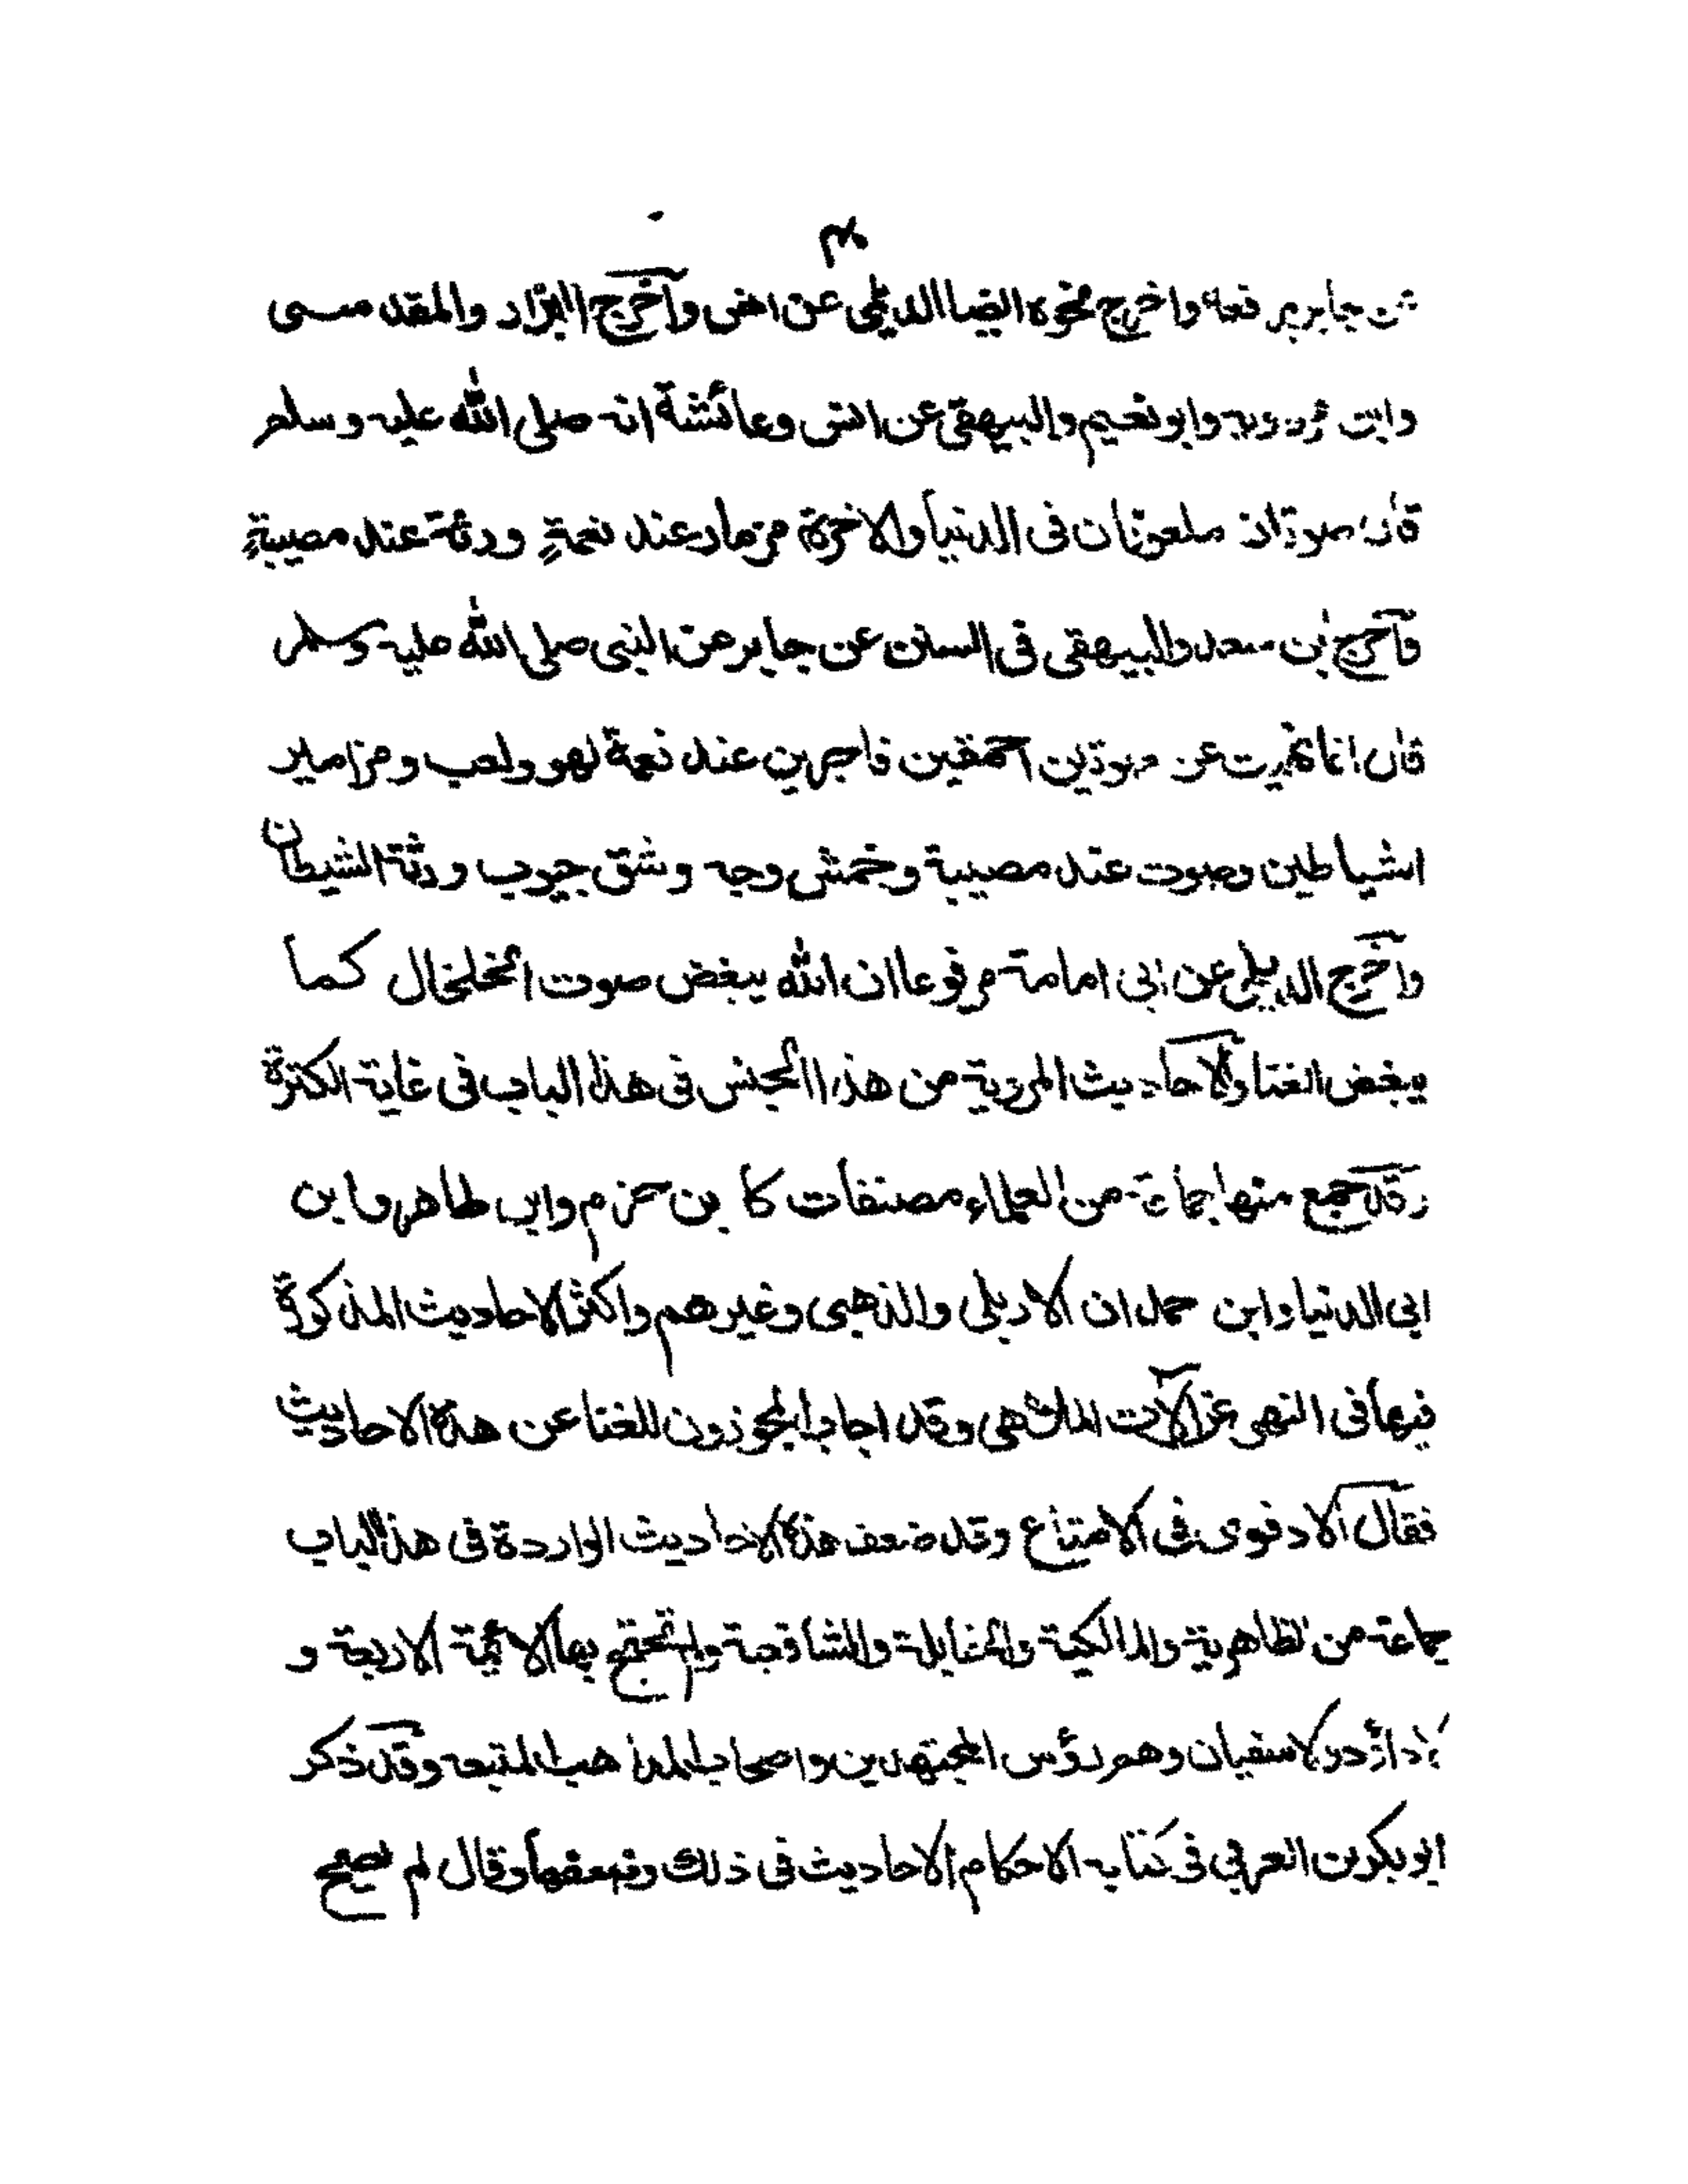 ٣
عن جابر يرفعه واخرج نحوه ايضا الديلمى عن انس واخرج البزار والمقدسى
وابن مردويه وابو نعيم والبيهقى عن انس وعائشة انه صلى الله عليه وسلم
قال صوتان ملعونان فى الدنيا والاخرة مزمار عند نعمةٍ ورنة عند مصيبةٍ
واخرج بن سعد والبيهقى فى السنن عن جابر عن النبى صلى الله عليه وسلم
قال انما نهيت عن صوتين احمقين فاجرين عند نعمة لهو ولعب ومزامير
الشياطين وصوت عند مصيبة وخمش وجه وشق جيوب ورنة الشيطان
واخرج الديلمى عن ابى امامة مرفوعا ان الله يبغض صوت الخلخال كما
يبغض الغنا والاحاديث المروية من هذا الجنس فى هذا الباب فى غاية الكثرة
وقد جمع منها جماعة من العلماء مصنفات كا بن حزم وابن طاهر وابن
ابى الدنيا وابن حمدان الاربلى والذهبى وغيرهم واكثر الاحاديث المذكورة
فيها فى النهى عن آلات الملاهى وقد اجاب المجوزون للغنا عن هذه الاحاديث
فقال الادفوى فى الامتاع وقد ضعف هذه الاحاديث الواردة فى هذا الباب
جماعة من الظاهرية والمالكية والحنابلة والشافعية ولم تحتج بها الائمة الاربعة و
لا داؤد ولا سفيان وهم رؤس المجتهدين واصحاب المذاهب المتبعه وقد ذكر
ابو بكر بن العربي فى كتابه الاحكام الاحاديث فى ذلك وضعفها وقال لم يصح